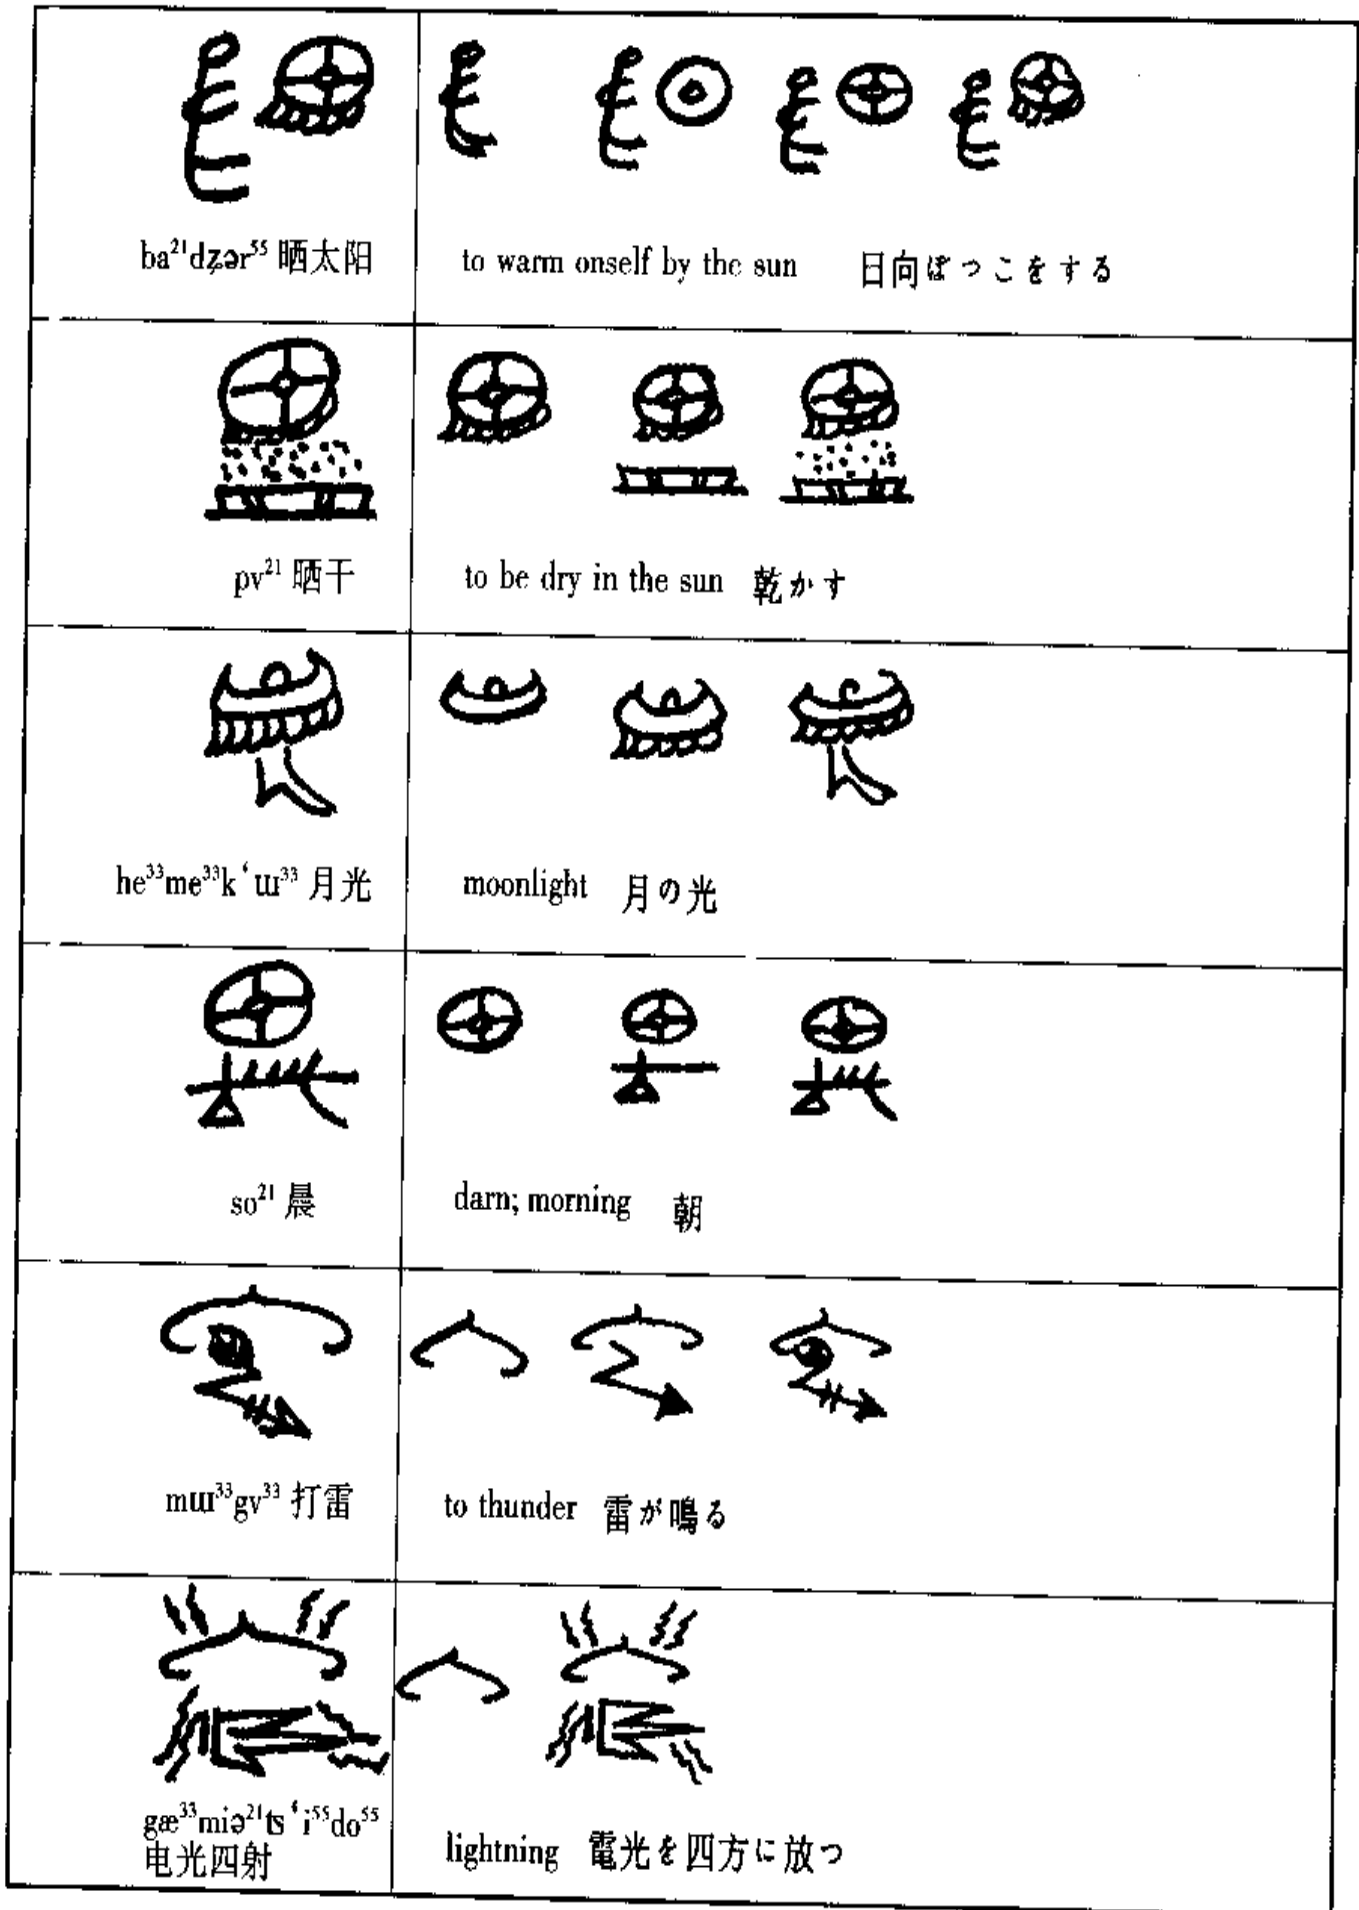 ba²¹dʐər⁵⁵ 晒太阳 to warm onself by the sun 日向ぼっこをする
pv²¹ 晒干 to be dry in the sun 乾かす
he³³me³³k‘ɯ³³ 月光 moonlight 月の光
so²¹ 晨 darn; morning 朝
mɯ³³gv³³ 打雷 to thunder 雷が鳴る
gæ³³miə²¹ts‘i⁵⁵do⁵⁵
电光四射 lightning 電光を四方に放つ